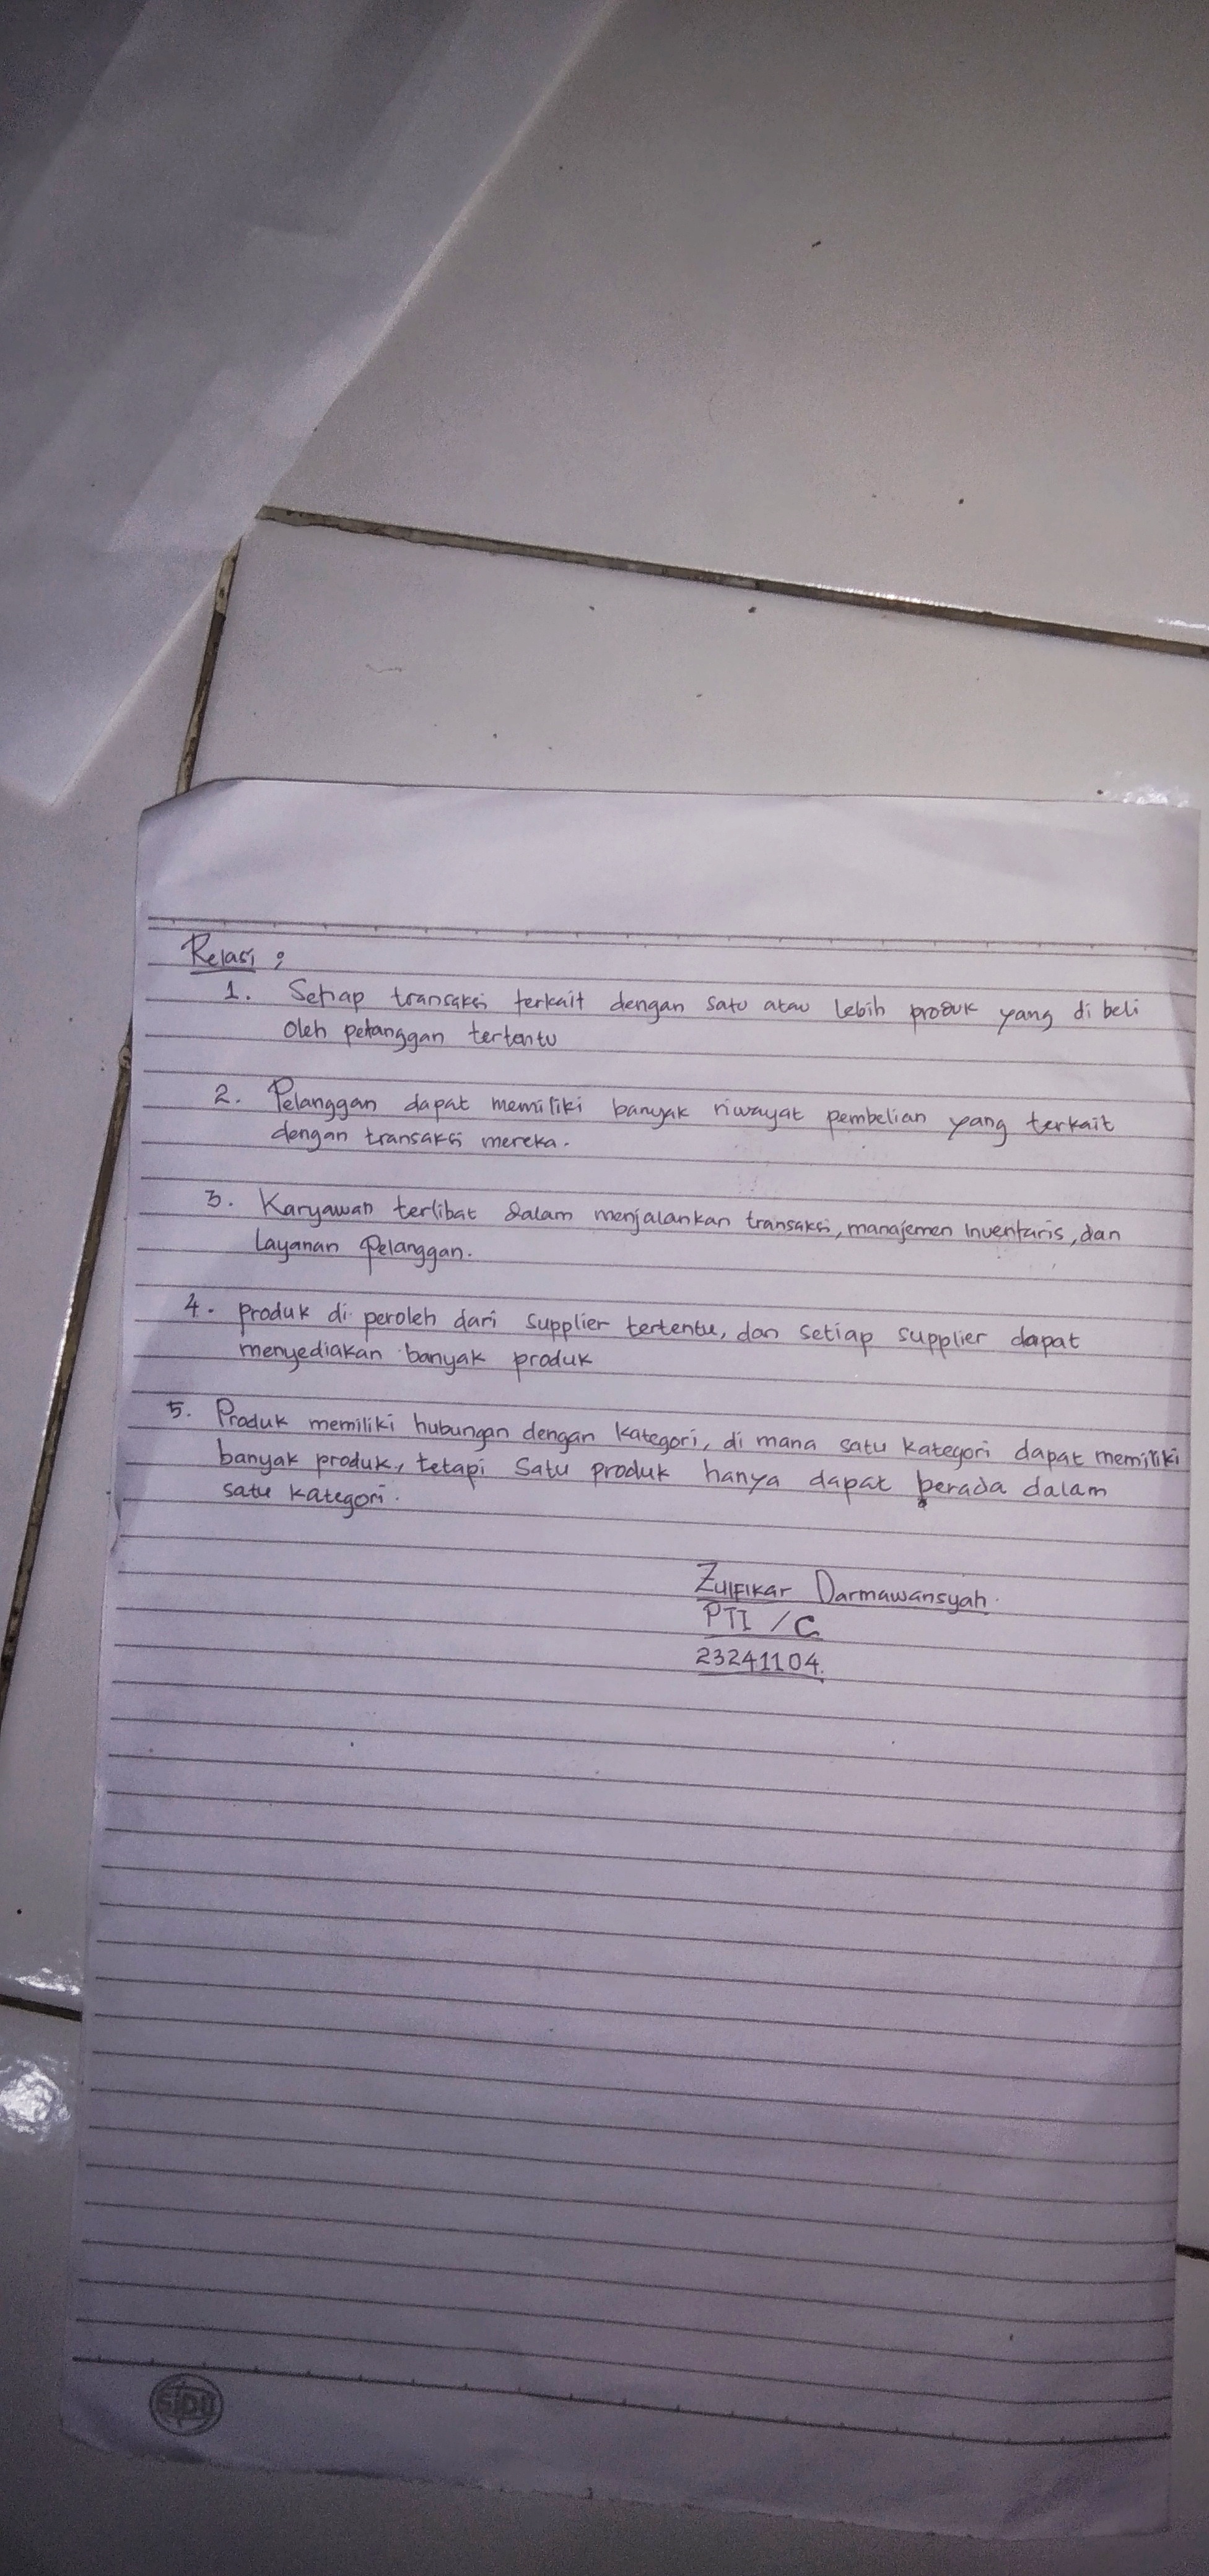 Relasi :
1. Setiap transaksi terkait dengan satu atau lebih produk yang di beli
oleh pelanggan tertentu
2. Pelanggan dapat memiliki banyak riwayat pembelian yang terkait
dengan transaksi mereka.
3. Karyawan terlibat dalam menjalankan transaksi, manajemen inventaris, dan
Layanan Pelanggan.
4. produk di peroleh dari supplier tertentu, dan setiap supplier dapat
menyediakan banyak produk
5. Produk memiliki hubungan dengan kategori, di mana satu kategori dapat memiliki
banyak produk, tetapi satu produk hanya dapat berada dalam
satu kategori.
Zulfikar Darmawansyah.
PTI / C
23241104.
SIDU